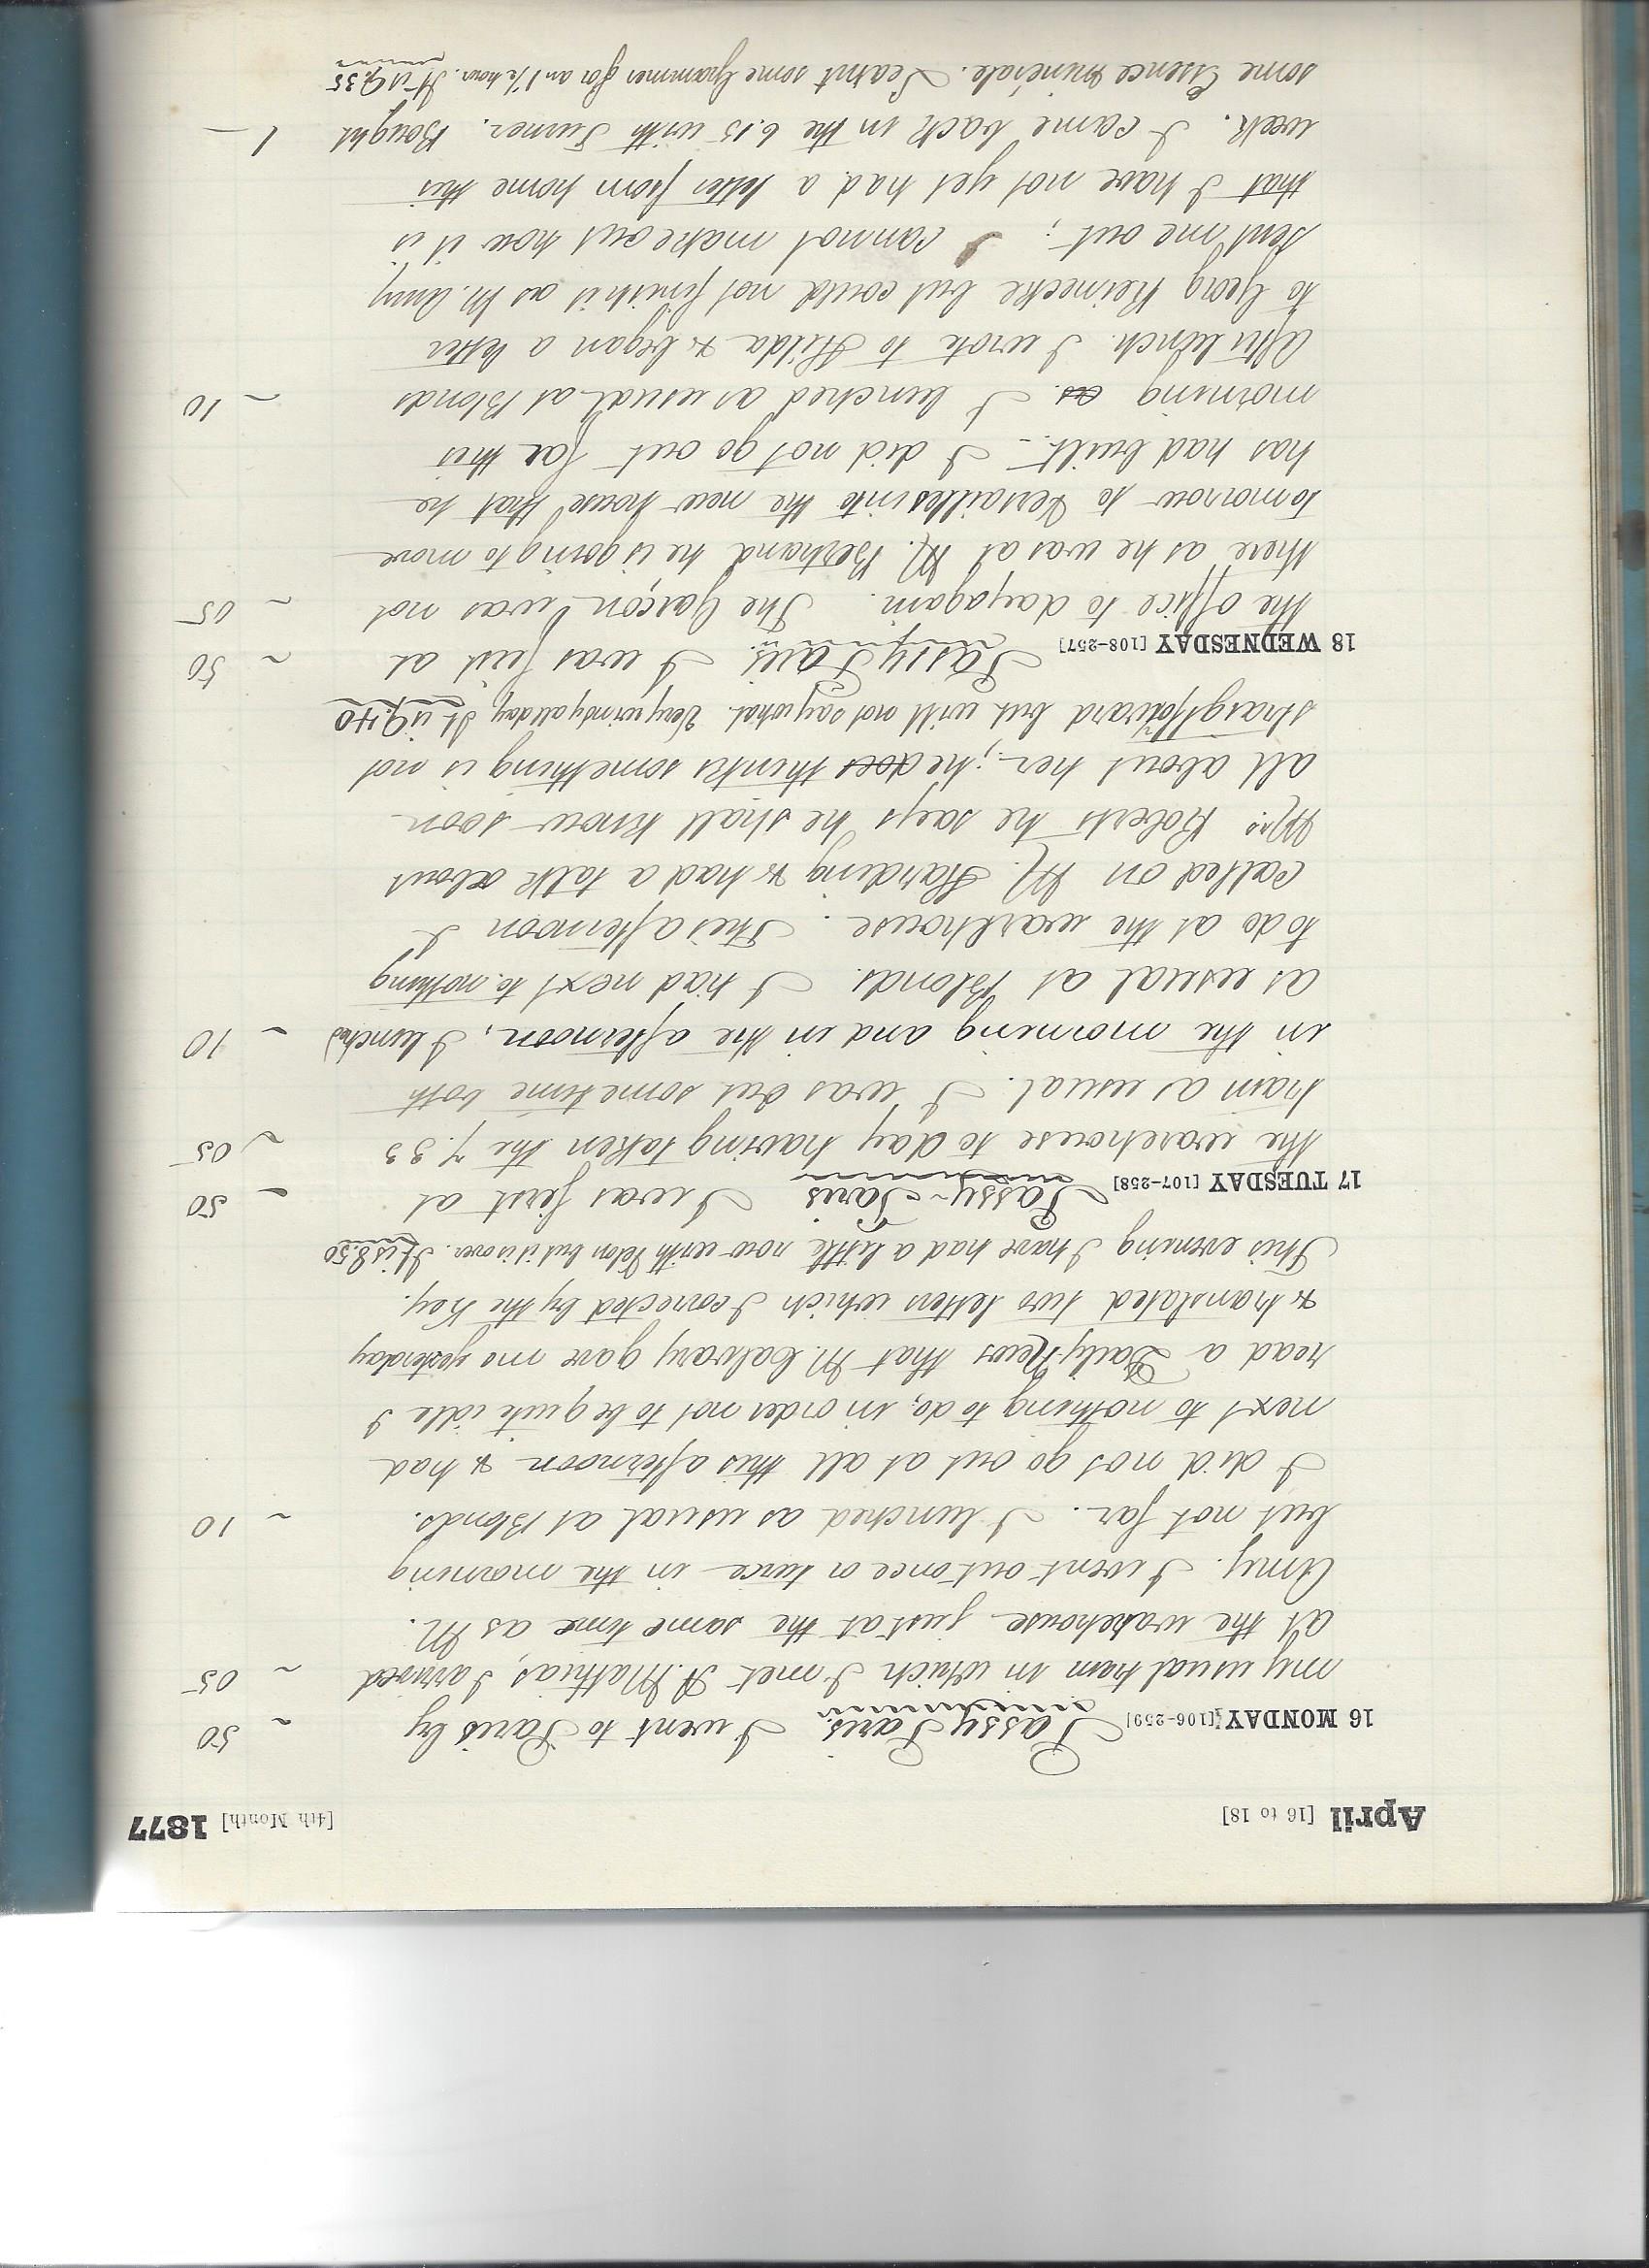 April [16 to 18] [4th Month] 1877
16 MONDAY [106-259] Passy Paris. I went to Paris by ~ 50
my usual tram in which I met A. Mathias, I arrived ~ 05
at the warehouse just at the same time as M.
Amy. I went out once or twice in the morning
but not far. I lunched as usual at Blonds. ~ 10
I did not go out at all this afternoon & had
next to nothing to do, in order not to be quite idle I
read a Daily News that M. Calvary gave me yesterday
& translated two letters which I corrected by the Key.
This evening I have had a little row with but it is over. It is 8.50
17 TUESDAY [107-258] Passy-Paris I was first at ~ 50
the warehouse to day having taken the 7.33 ~ 05
tram as usual. I was out sometime both
in the morning and in the afternoon, I lunched ~ 10
as usual at Blonds. I had next to nothing
to do at the warehouse. This afternoon I
called on M. Harding & had a talk about
Mrs. Roberts he says he shall know soon
all about her; he does thinks something is not
straightfoward but will not say what. Very windy all day. It is 9.40
18 WEDNESDAY [108-257] Passy Paris. I was first at ~ 50
the office to day again. The Garçon was not ~ 05
there as he was at M. Bertrand he is going to move
tomorrow to Versailles into the new house that he
has had built. I did not go out far this
morning as. I lunched as usual at Blonds ~ 10
After lunch I wrote to Hilda & began a letter
to Georg Reinecke but could not finish it as M. Amy
sent me out; I cannot make out how it is
that I have not yet had a letter from home this
week. I came back in the 6.15 with Turner. Bought 1 —
some Essence minérale. Learnt some Grammer for an 1/2 hour. It is 9.35